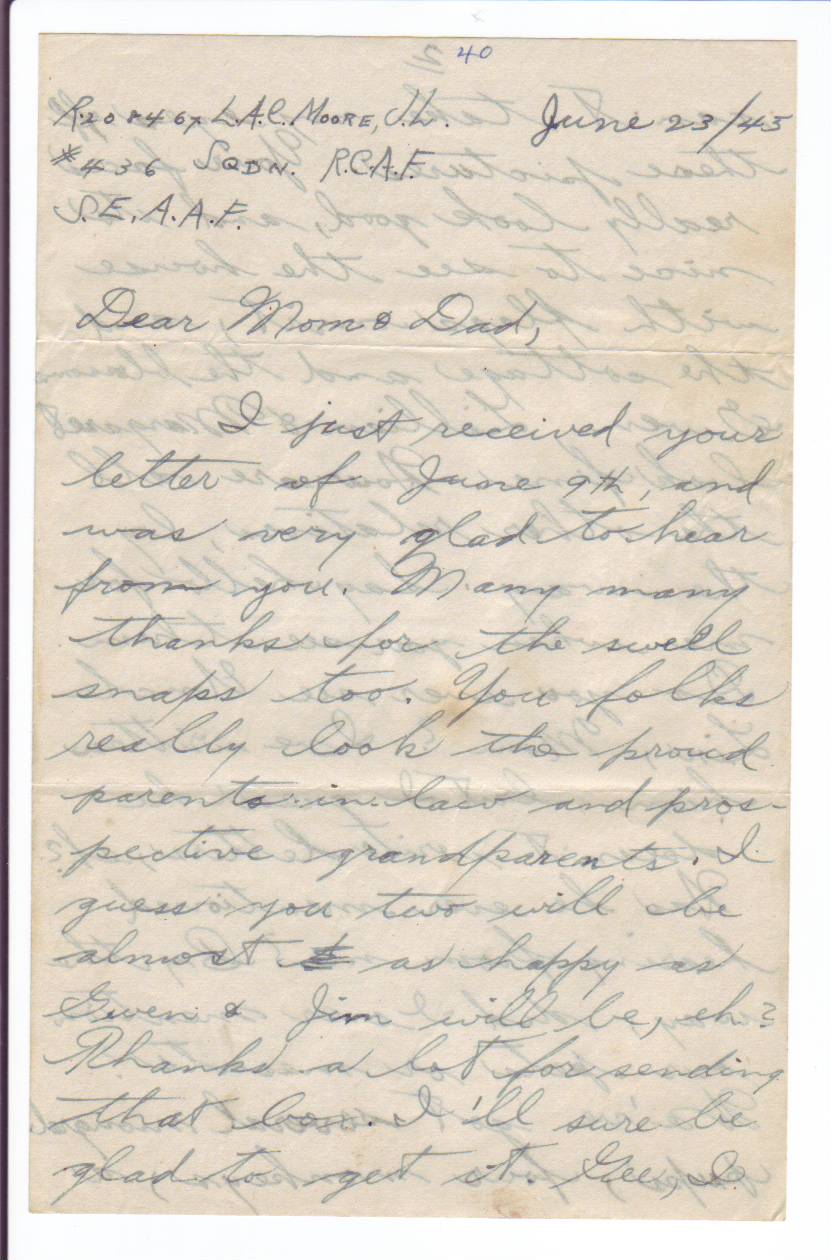 40
R.208467 L.A.C. MOORE, J.L. June 23/45
#436 SQDN. R.C.A.F.
S.E.A.A.F.
Dear Mom & Dad,
I just received your
letter of June 9th, and
was very glad to hear
from you. Many many
thanks for the swell
snaps too. You folks
really look the proud
parents-in-law and pros-
pective grandparents. I
guess you two will be
almost as happy as
Gwen & Jim will be, eh?
Thanks a lot for sending
that box. I'll sure be
glad to get it. Gee, I